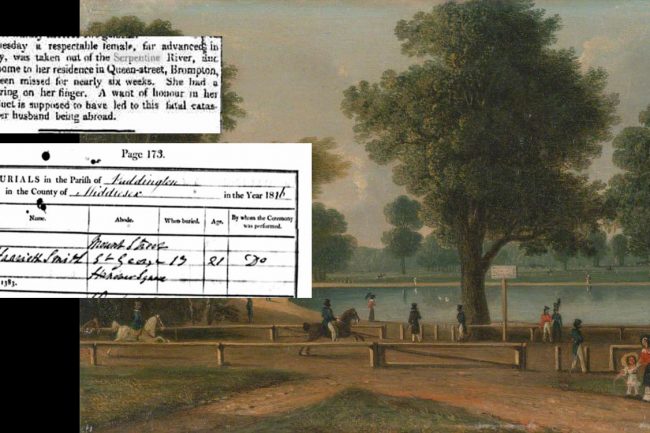 uesday a respectable female, far advanced in
y, was taken out of the Serpentine River, and
ome to her residence in Queen-street, Brompton,
een missed for nearly six weeks. She had a
ring on her finger. A want of honour in her
uct is supposed to have led to this fatal catas-
er husband being abroad.
Page 173.
URIALS in the Parish of Paddington
in the County of Middlesex in the Year 1816
Name. Abode. When buried. Age. By whom the Ceremony
was performed.
Mount Street
Harriett Smith St George 13 21 Do
Hanover Square
1383.